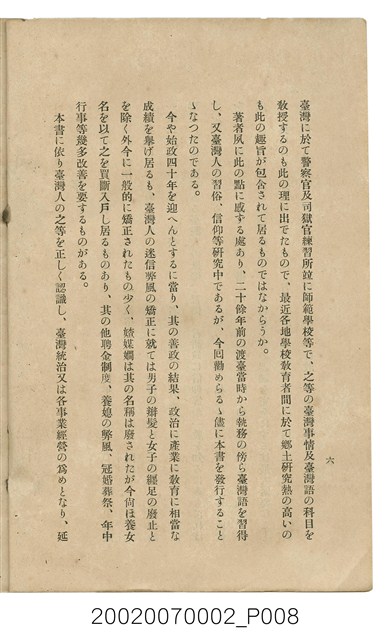 臺灣に於て警察官及司獄官練習所竝に師範學校等で、之等の臺灣事情及臺灣語の科目を
敎授するのも此の理に出でたもので、最近各地學校敎育者間に於て鄕土硏究熱の高いの
も此の趣旨が包含されて居るものではなからうか。
著者夙に此の點に感する處あり、二十餘年前の渡臺當時から執務の傍ら臺灣語を習得
し、又臺灣人の習俗、信仰等硏究中であるが、今囘勸めらるゝ儘に本書を發行すること
ゝなつたのである。
今や始政四十年を迎へんとするに當り、其の善政の結果、政治に產業に敎育に相當な
成績を擧げ居るも、臺灣人の迷信弊風の矯正に就ては男子の辮髮と女子の纏足の廢止と
を除く外今に一般的に矯正されたもの少く、媳媒嫺は其の名稱は廢されたが今尙ほ養女
名を以て之を買斷入戶し居るものあり、其の他聘金制度、養媳の弊風、冠婚葬祭、年中
行事等幾多改善を要するものがある。
本書に依り臺灣人の之等を正しく認識し、臺灣統治又は各事業經營の爲めとなり、延
六
20020070002_P008